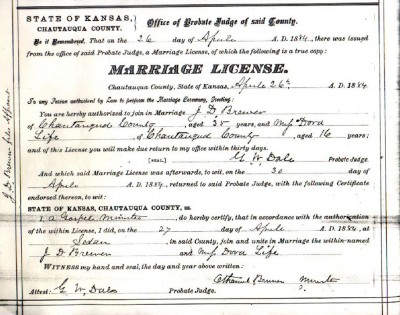 STATE OF KANSAS,
CHAUTAUQUA COUNTY.
Office of Probate Judge of said County.
Be it Remembered, That on the 26 day of Aprile A. D. 1884, there was issued
from the office of said Probate Judge, a Marriage License, of which the following is a true copy:
MARRIAGE LICENSE.
Chautauqua County, State of Kansas, Aprile 26th A. D. 1884
To any Person authorized by Law to perform the Marriage Ceremony, Greeting:
You are hereby authorized to join in Marriage J. D. Brewer
of Chautauqua County, aged 35 years, and Miss Dora
Life of Chautauqua County, aged 16 years;
and of this License you will make due return to my office within thirty days.
[SEAL.] G. W. Dale Probate Judge.
And which said Marriage License was afterwards, to wit, on the 30 day of
Aprile A. D. 1884, returned to said Probate Judge, with the following Certificate
endorsed thereon, to wit:
STATE OF KANSAS, CHAUTAUQUA COUNTY, ss.
I, a Gospel Minister do hereby certify, that in accordance with the authorization
of the within License, I did, on the 27 day of Aprile A. D. 1884, at
Sedan, in said County, join and unite in Marriage the within-named
J D Brewer and Miss Dora Life
WITNESS my hand and seal, the day and year above written:
Brewer Minister
Attest: G W Dale Probate Judge.
J. D. Brewer files